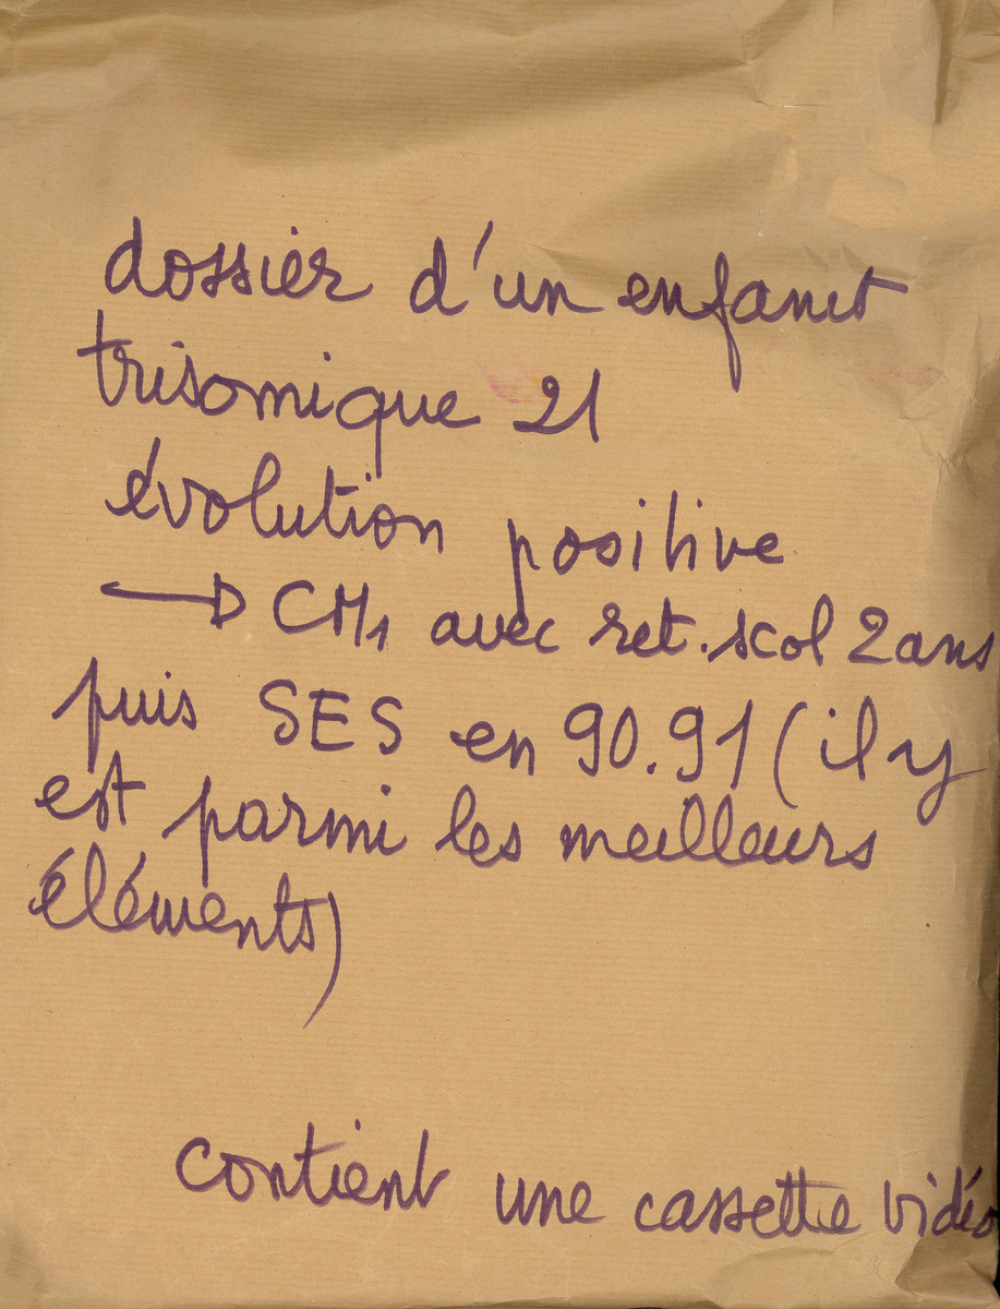 dossier d'un enfant
trisomique 21
évolution positive
→ CM1 avec ret. scol 2 ans
puis SES en 90.91 (il y
est parmi les meilleurs
éléments)
contient une cassette vidéo